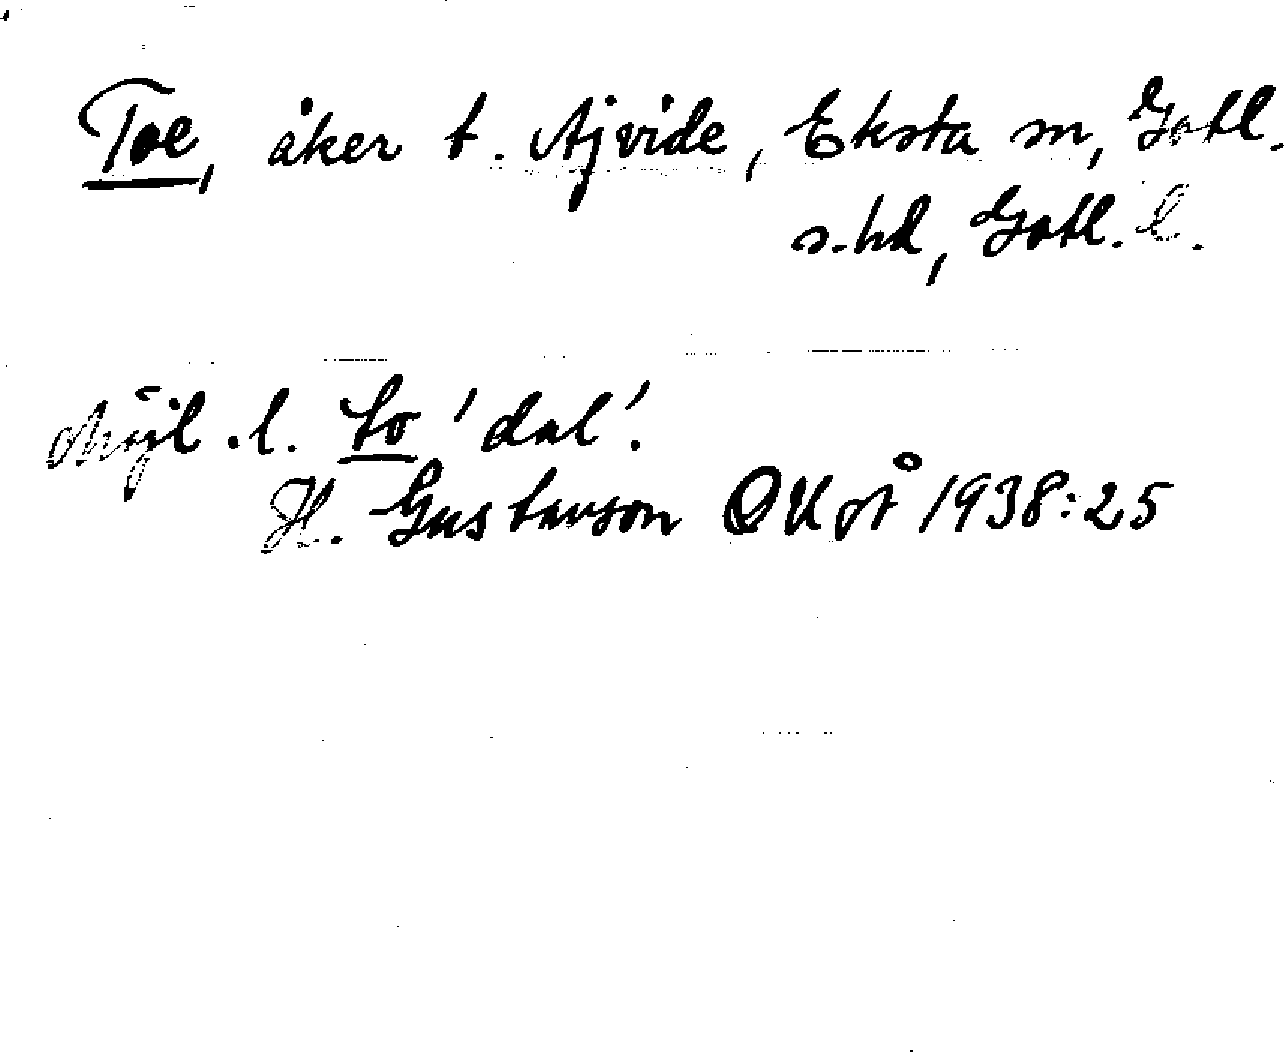 Toe, åker t. Ajvide, Eksta sn, Gotl.
s. hd, Gotl. l.
Möjl. l. to 'dal'.
H. Gustavson OUÅ 1938:25